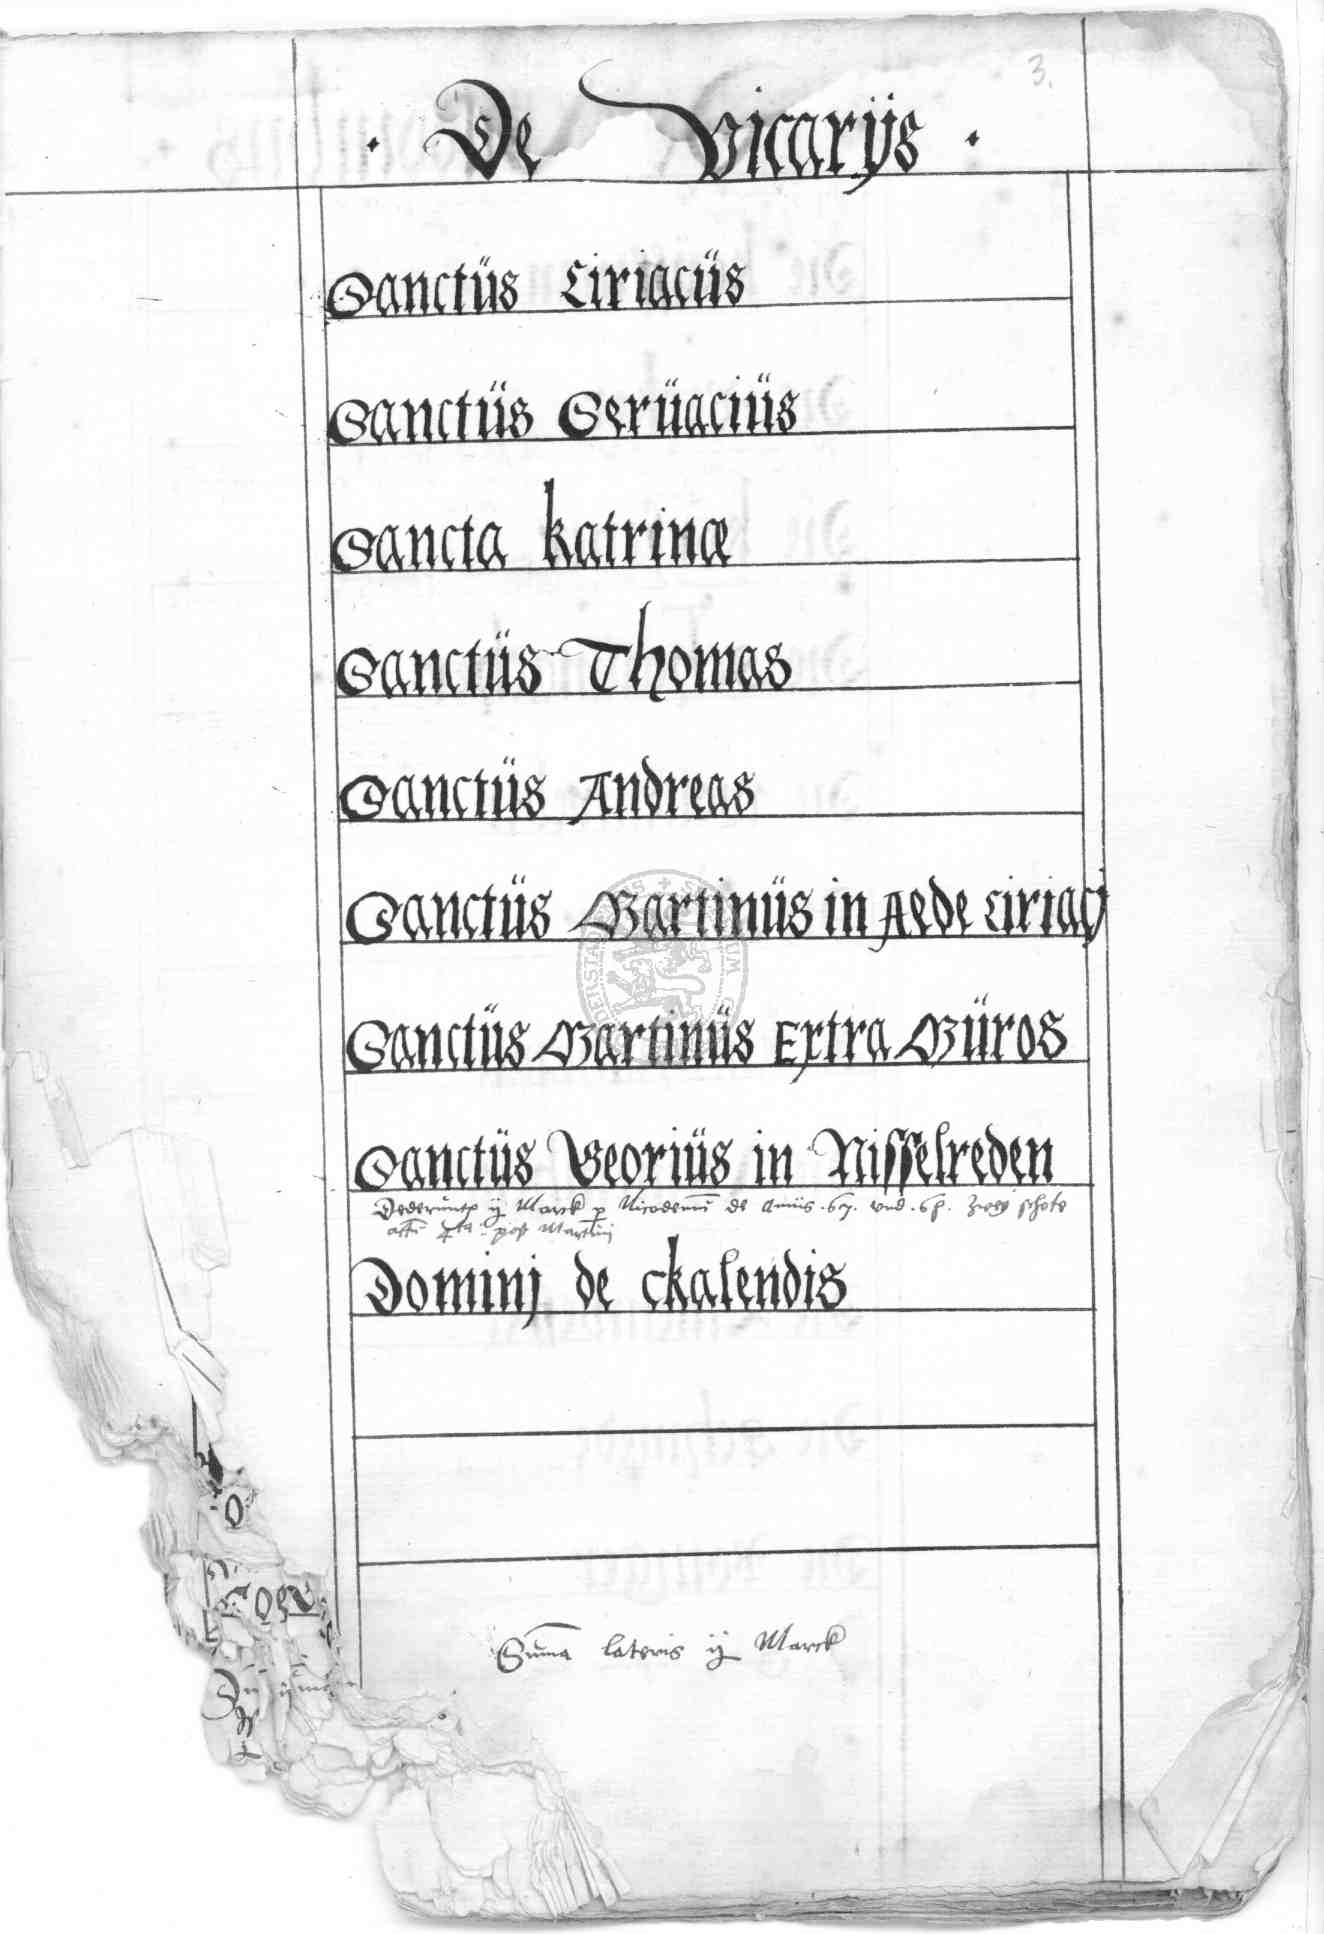 3.
· De Vicarijs ·
Sanctüs Ciriacüs
Sanctüs Serüaciüs
Sancta katrinæ
Sanctüs Thomas
Sanctüs Andreas
Sanctüs Martinüs in Aede Ciriacj
Sanctüs Martinüs Extra Müros
Sanctüs Georiüs in Nisselreden
ij Marck p Nicodemū de Annis .67. vnd .68. zwey schote
post Martinj
Dominj de ckalendis
Sum̄a lateris ij Marck